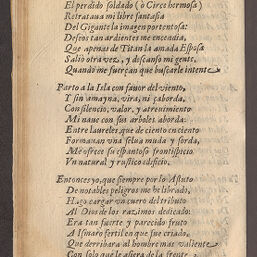 El perdido soldado (ô Circe hermosa)
Retrataua mi libre fantasia
Del Gigante la imagen portentosa:
Deseos tan ardientes me encendia,
Que apenas de Titan la amada Esposa
Saliò otra vez, y descansò mi gente,
Quando me fuerçan que buscarle intente.
Parto a la Isla con fauor del viento,
Y sin amayna, vira, ni zaborda,
Con silencio, valor, y atreuimiento
Mi naue con sus arboles aborda:
Entre laureles, que de ciento en ciento
Formauan vna selua muda y sorda,
Me ofrece su espantoso frontispicio
Vn natural y rustico edificio.
Entonces yo, que siempre por lo Astuto
De notables peligros me he librado,
Hago cargar vn cuero del tributo
Al Dios de los razimos dedicado:
Era tan fuerte y parecido fruto
A Ismaro fertil en que fue criado,
Que derribara al hombre mas valiente
Con solo que le asiera de la frente